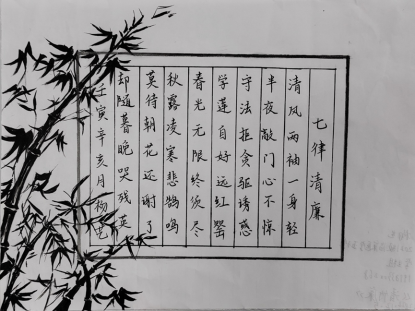 七律清廉
清风两袖一身轻
半夜敲门心不惊
守法拒贪驱诱惑
学莲自好远红罂
春光无限终须尽
秋露凌寒悲鹄鸣
莫待朝花还谢了
却随暮晚哭残英
壬寅辛亥月杨艺